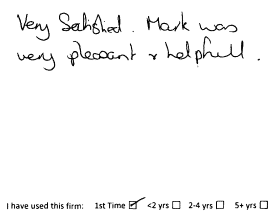 Very Satisfied. Mark was
very pleasant & helpfull.
I have used this firm: 1st Time ☑ <2 yrs ☐ 2-4 yrs ☐ 5+ yrs ☐